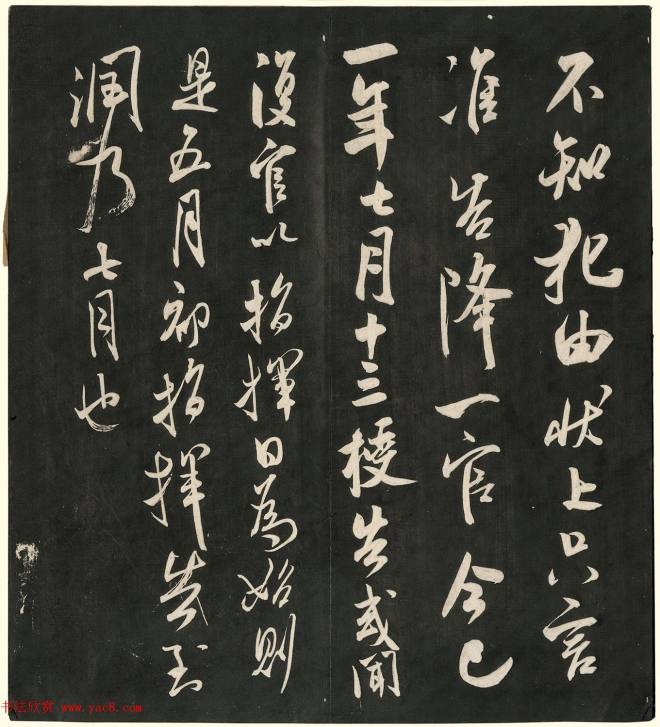 不知犯由状上只言
准告降一官今已
一年七月十三授告或闻
復官以指揮日為始則
是五月初指揮告到
潤乃七月也
书法欣赏 www.yac8.com